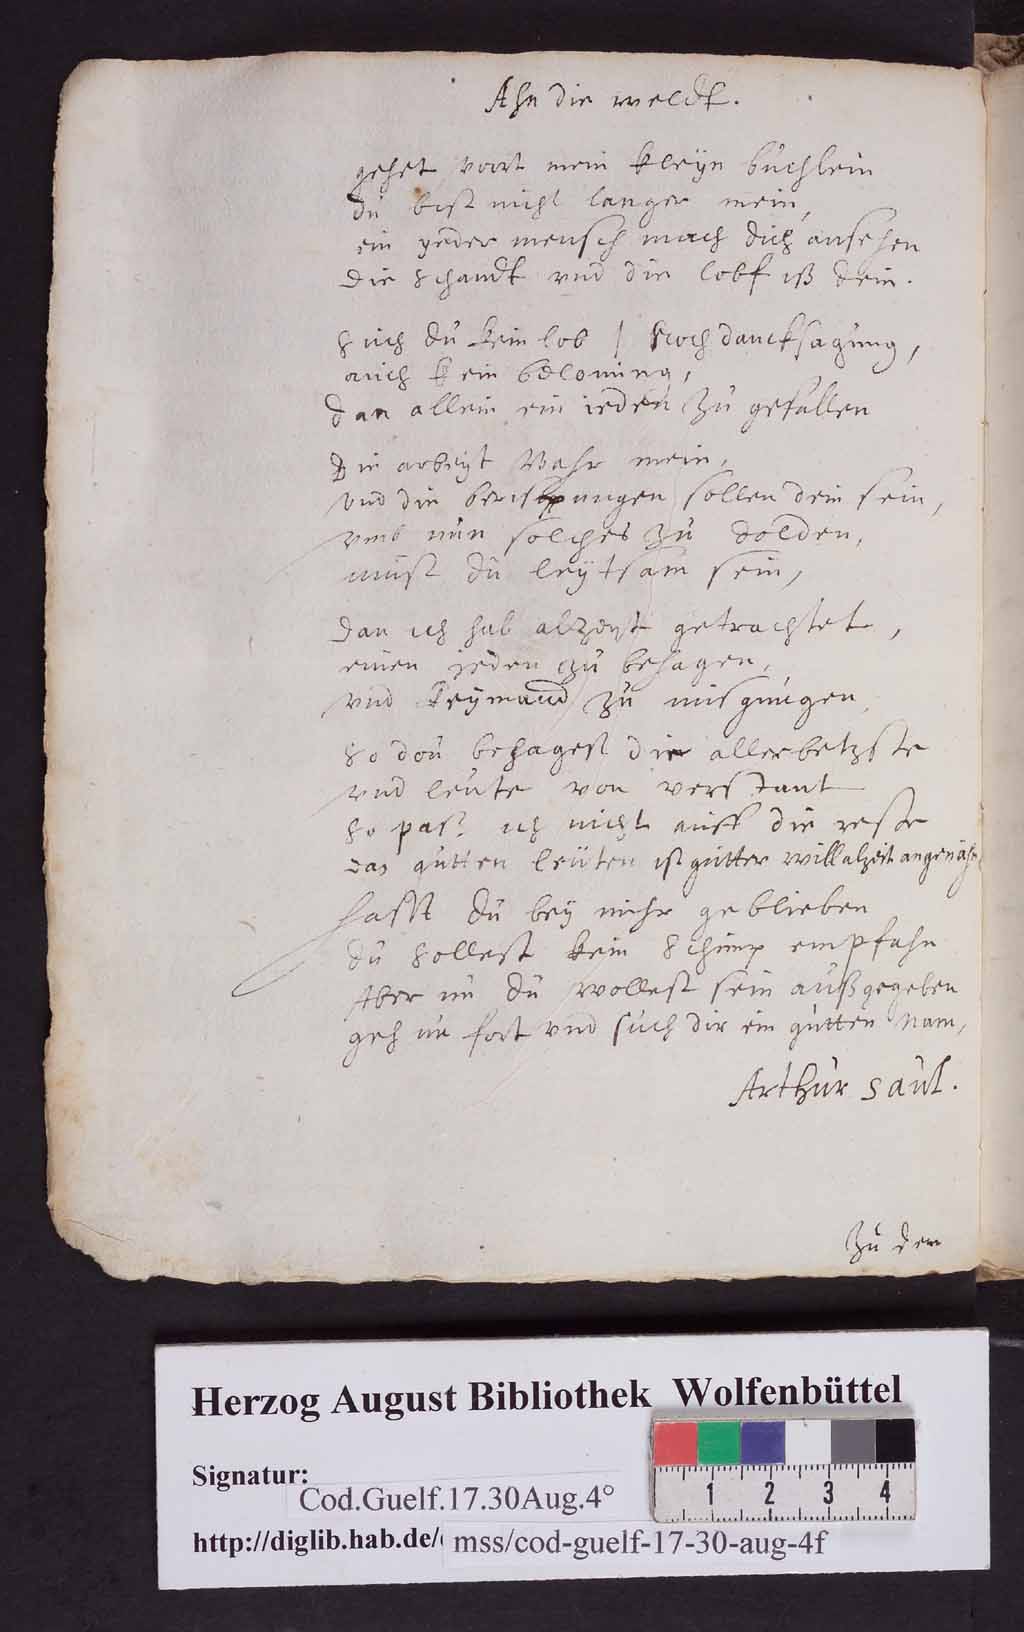 Ahn die weldt.
gehet voort mein kleÿn bůchlein
dů bist nicht langer mein,
ein yeder mensch mach dich ansehen
die schandt vnd die lobf iß dein.
Sůch dů kein lob / Noch dancksagůng,
auch kein beloning,
dan allein ein ieden zů gefallen
Die arbeyt Wahr mein,
vnd die sollen dein sein,
vmb nůn solches zů dolden,
můst dů leÿtsam sein,
dan ich hab alzeyt getrachtet,
einen jeden zů behagen,
vnd keÿmand zů misgnůgen,
So doů behagest die allerbetzste
vnd leůte von verstant
So pas? ich nicht auff die reste
das gůtten leůten ist gůtter will alzeit angenähm
hasst dů beÿ mihr geblieben
dů sollest kein schimp empfahn
Aber nů dů wollest sein außgegeben
geh nů fort vnd sůch dir ein gůtten Nam,
Arthůr Saůl.
Zů dem
Herzog August Bibliothek Wolfenbüttel
Signatur:
Cod.Guelf.17.30Aug.4°
http://diglib.hab.de/ mss/cod-guelf-17-30-aug-4f
1 2 3 4